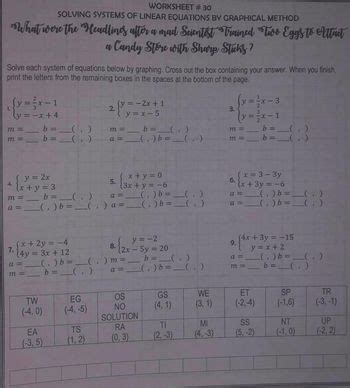 WORKSHEET # 30
SOLVING SYSTEMS OF LINEAR EQUATIONS BY GRAPHICAL METHOD
What were the Headlines after a mad Scientist Trained Two Eggs to Attact
a Candy Store with Sharp Sticks ?
Solve each system of equations below by graphing. Cross out the box containing your answer. When you finish,
print the letters from the remaining boxes in the spaces at the bottom of the page.
1. x − 1
y = −x + 4
m = __ b = __( , )
m = __ b =
2. {y = −2x + 1
y = x − 5
m = b = __( , )
m = __ b = __( , )
3. x − 3
x − 1
m = __ b = __( , )
m = __ b = __( , )
4. {y = 2x
x + y = 3
m = __ b = __( , )
a = __( , ) b = __( , )
5. {x + y = 0
3x + y = −6
a = __( , ) b = __( , )
a = __( , ) b = __( , )
6. {x = 3 − 3y
x + 3y = −6
a = __( , ) b = __( , )
a = __( , ) b = __( , )
7. {x + 2y = −4
4y = 3x + 12
a = __( , ) b = __( , )
m = __ b = __( , )
8. {y = −2
2x − 5y = 20
m = __ b = __( , )
a = __( , ) b = __( , )
9. {4x + 3y = −15
y = x + 2
a = __( , ) b = __( , )
m = __ b = __( , )
TW EG OS GS WE ET SP TR
(-4, 0) (-4, -5) NO SOLUTION (4, 1) (3, 1) (-2, -4) (-1,6) (-3, -1)
EA TS RA TI MI SS NT UP
(-3, 5) (1, 2) (0, 3) (2, -3) (4, -3) (5, -2) (-1, 0) (-2, 2)